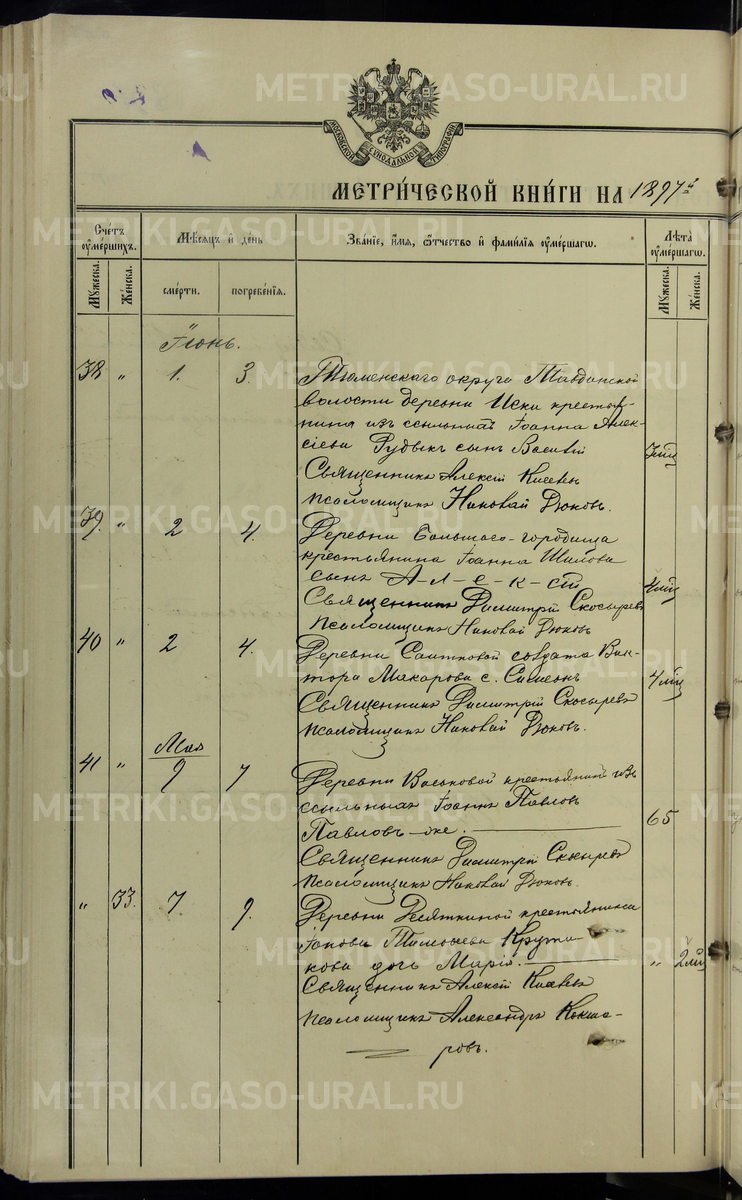 METRIKI.GASO-URAL.RU
МОСКОВСКОЙ СѴНОДАЛЬНОЙ ТИПОГРАФІИ
МЕТРИ́ЧЕСКОЙ КНИ́ГИ НА 1897 г
Сче́тъ ᲂу҆ме́ршихъ.
Мѣ́сяцъ и҆ де́нь
Зва́нїе, и҆́мѧ, ѻ҆́тчество и҆ фами́лїѧ ᲂу҆ме́ршагѡ.
Лѣ́та ᲂу҆ме́ршагѡ.
Мꙋ́жеска. Же́нска. сме́рти. погребе́нїѧ. Мꙋ́жеска. Же́нска.
Іюнь.
38 „ 1. 3. Тюменскаго округа Тавдинской
волости деревни Иски крестья-
нина изъ ссыльныхъ Іоанна Алек-
сіева Рудыкъ сынъ Василій
Священникъ Алексій
Псаломщикъ Николай Дюковъ.
39. „ 2 4. Деревни Большаго-городища
крестьянина Іоанна Шилова
сынъ А-Л-Е-К-сій 4 мц
Священникъ Димитрій Скосыревъ
Псаломщикъ Николай Дюковъ
40 „ 2 4. Деревни Саитковой солдата Вик-
тора Макарова с. Симеонъ 4 мц
Священникъ Димитрій Скосыревъ
Псаломщикъ Николай Дюковъ.
Мая
41 „ 9 7 Деревни Васьковой крестьянинъ изъ
ссыльныхъ Іоаннъ Павловъ
Павловъ-же. 65
Священникъ Димитрій Скосыревъ
Псаломщикъ Николай Дюковъ.
„ 33. 7. 9. Деревни Десяткиной крестьянина
Іакова Тимофеева Крути-
кова дочь Марія. „ 2 мц
Священникъ Алексій
Псаломщикъ Александръ Кокша-
ровъ.